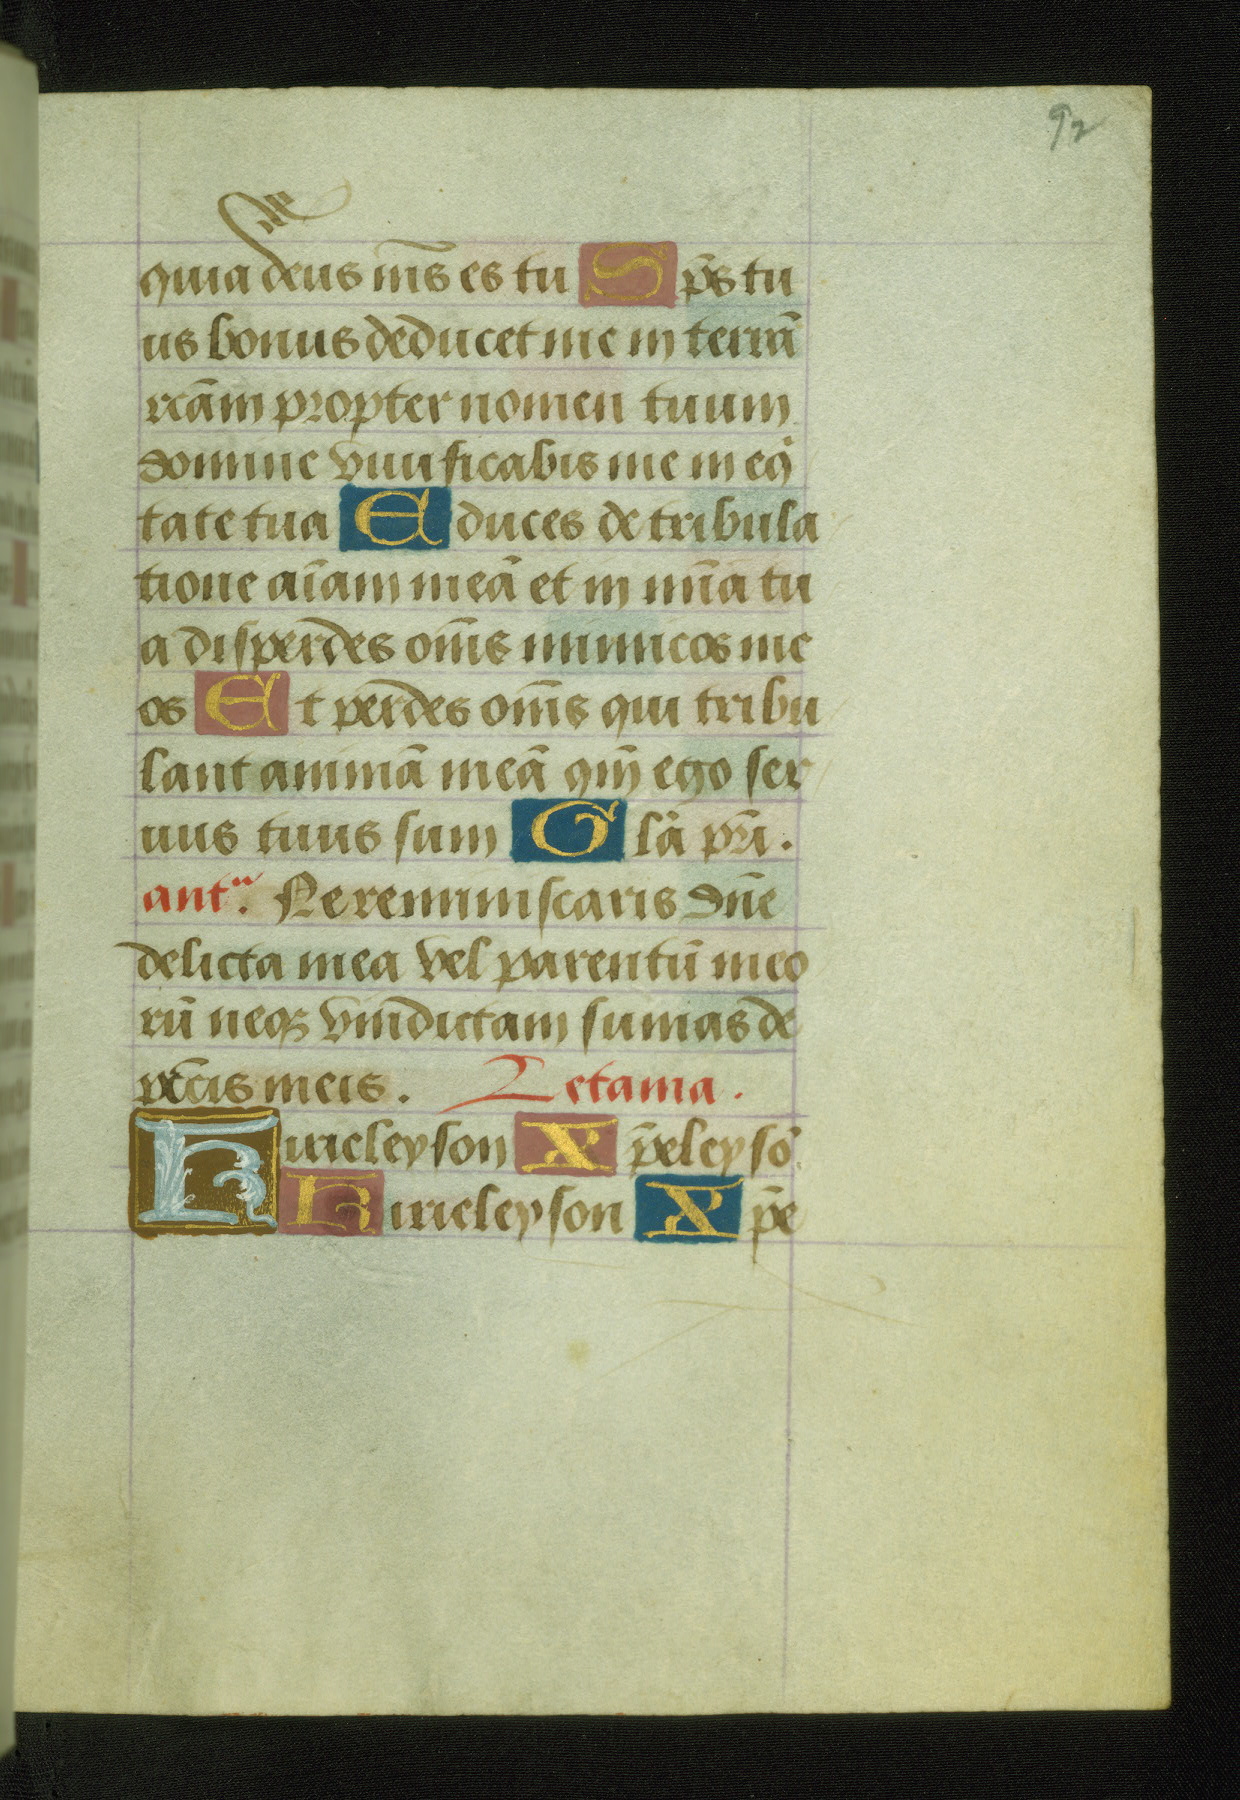 92
quia deus nr̄s es tu Sp̄s tu
us bonus deducet me in terrā
rcām propter nomen tuum
domine viuificabis me in eq̇
tate tua Educes de tribula
tione aīam meā et in mīa tu
a disperdes om̄s inimicos me
os Et perdes om̄s qui tribu
lant animā meā qm̄ ego ser
uus tuus sum Glā pr̄i.
antᵃ. Ne reminiscaris dn̄e
delicta mea vel parentū meo
rū neqꝫ vindictam sumas de
pctīs meis. Letania.
Kirieleyson Xp̄eleysō.
Kirieleyson Xp̄e